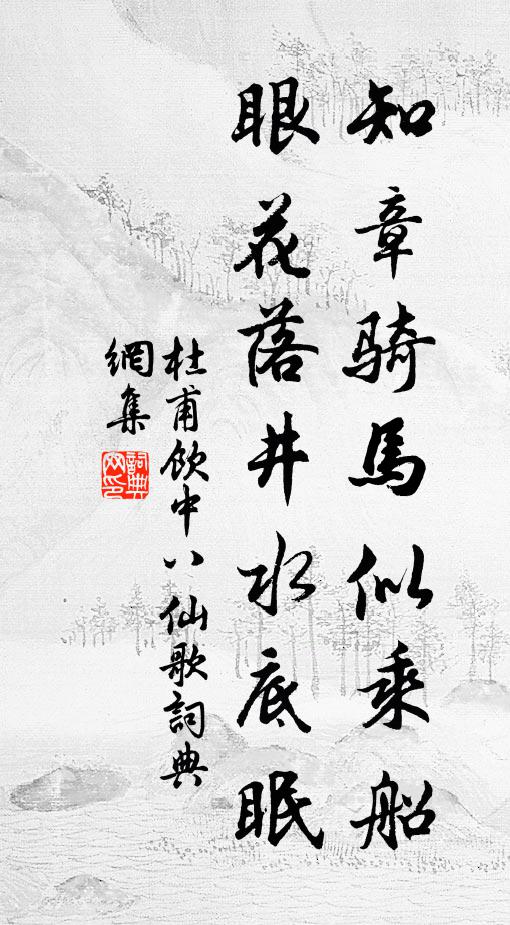 知章骑馬似乘船
眼花落井水底眠
杜甫飲中八仙歌詞典
網集
詞典
网印